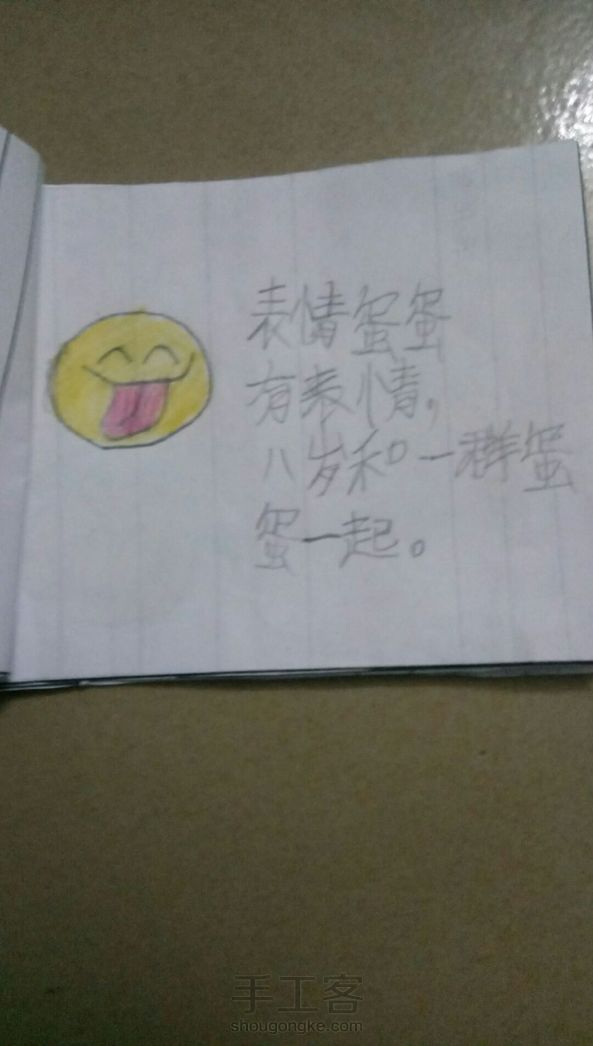 表情蛋蛋
有表情,
八岁和一群蛋
蛋一起。
手工客
shougongke.com